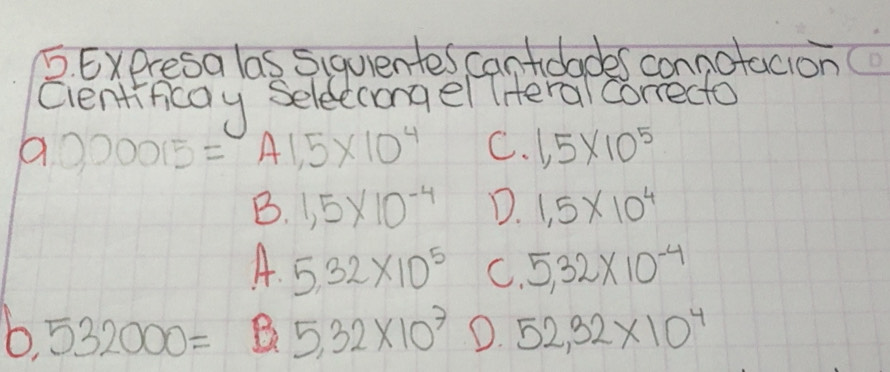 5. Expresa las siguientes cantidades connotación
Científica y Selecciona el literal correcto
a. 0,00015 = A 1,5 x 10⁴ C. 1,5 x 10⁵
B. 1,5 x 10⁻⁴ D. 1,5 x 10⁴
A. 5,32 x 10⁵ C. 5,32 x 10⁻⁴
b. 532000 = B. 5,32 x 10⁷ D. 52,32 x 10⁴